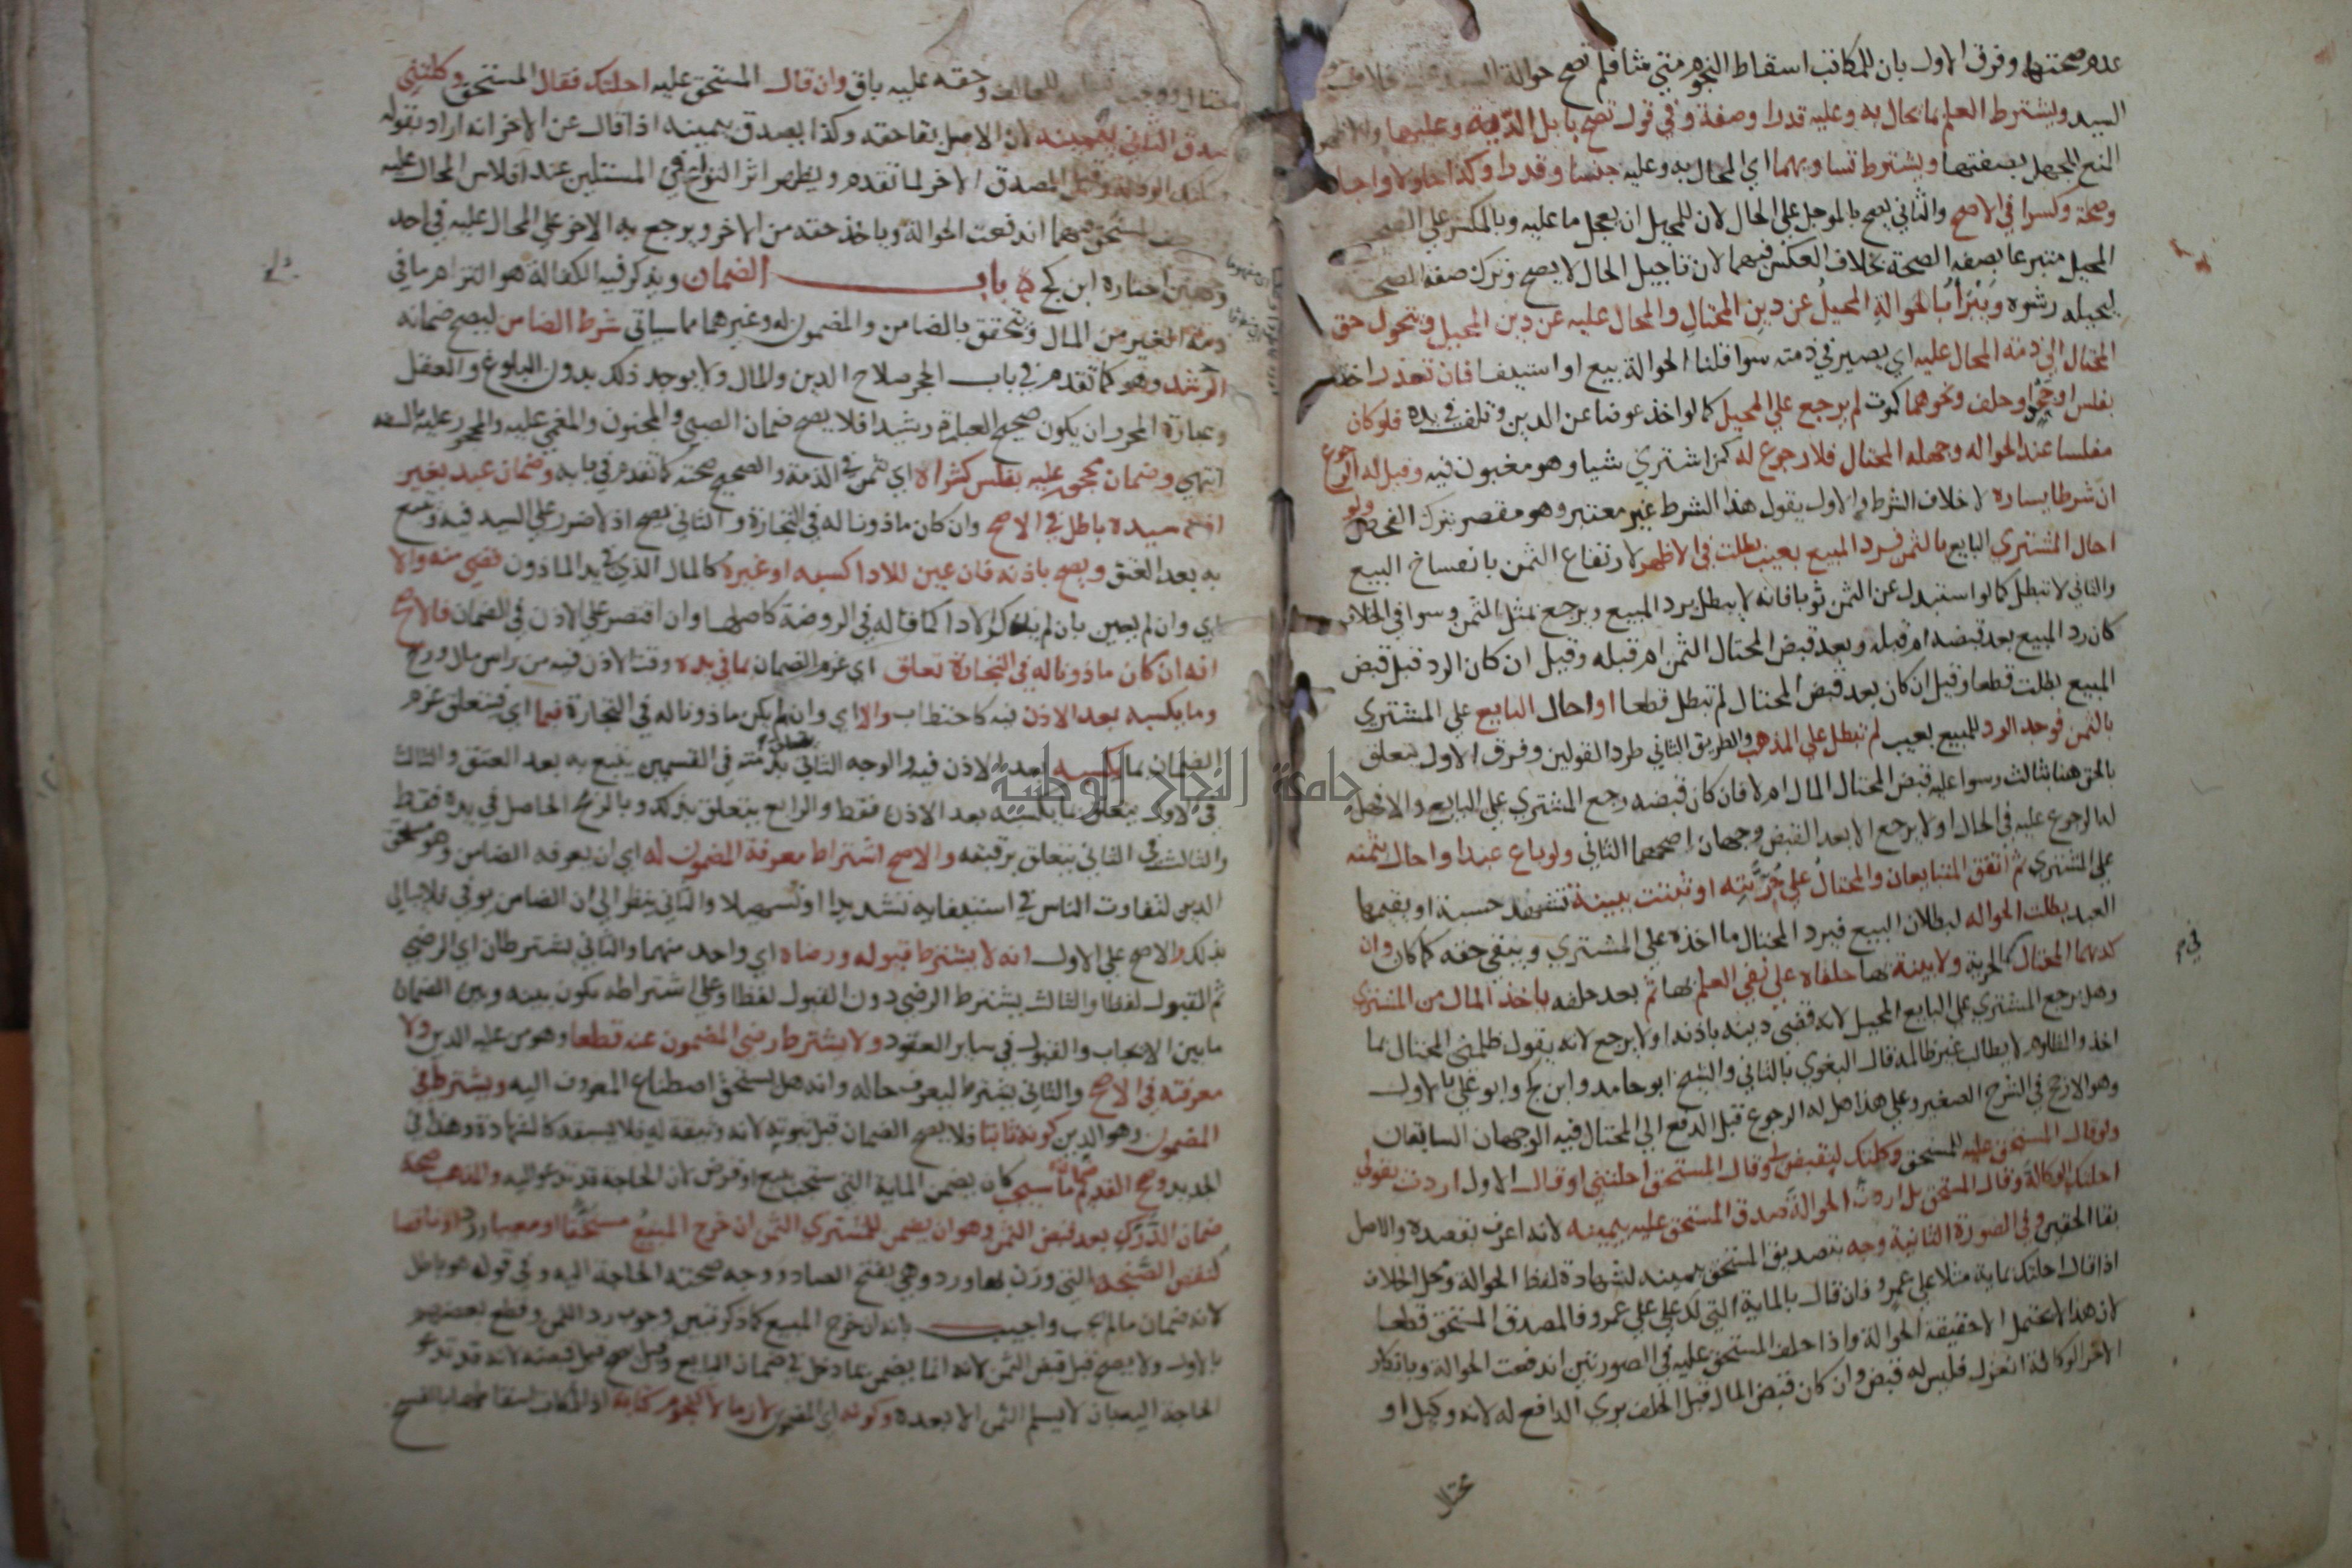 عدم صحتها وفرق الاول بان للمكاتب اسقاط النجوم متي شا فلم تصح حوالة السيد
السيد ويشترط العلم بما يحال به وعليه قدرا وصفة وفي قول تصح بابل الدية وعليها
المنع للجهل بصفتها ويشترط تساويهما اي المحال به وعليه جنسا وقدرا وكذا حلولا واجلا
وصحة وكسرا في الاصح والثاني يصح بالموجل علي الحال لان للمحيل ان يعجل ما عليه وبالمكسر علي الصحيح
المحيل متبرعا بصفة الصحة بخلاف العكس فيهما لان تاجيل الحال لا يصح وترك صفة الصحة
ليحيله رشوة ويبرا بالحوالة المحيل عن دين المحتال والمحال عليه عن دين المحيل ويتحول حق
المحتال الي ذمة المحال عليه اي يصير في ذمته سوا قلنا الحوالة بيع او استيفا فان تعذر اخذه
بفلس او جحد وحلف ونحوهما كموت لم يرجع علي المحيل كما لو اخذ عوضا عن الدين وتلف في يده فلو كان
مفلسا عند الحواله وجهله المحتال فلا رجوع له كمن اشتري شيا وهو مغبون فيه وقيل له الرجوع
ان شرطا يساره لاخلاف الشرط والاول يقول هذا الشرط غير معتبر وهو مقصر بترك الفحص ولو
احال المشتري البايع بالثمن فرد المبيع بعيب بطلت في الاظهر لارتفاع الثمن بانفساخ البيع
والثاني لا تبطل كما لو استبدل عن الثمن ثوبا فانه لا يبطل برد المبيع ويرجع بمثل الثمن وسوا في الخلاف
كان رد المبيع بعد قبضه ام قبله وبعد قبض المحتال الثمن ام قبله وقيل ان كان الرد قبل قبض
المبيع بطلت قطعا وقيل ان كان بعد قبض المحتال لم تبطل قطعا او احال البايع علي المشتري
بالثمن فوجد الرد للمبيع بعيب لم تبطل علي المذهب والطريق الثاني طرد القولين وفرق الاول بتعلق
بالحق هنا بثالث وسوا عليه قبض المحتال المال ام لا فان كان قبضه رجع المشتري علي البايع والا فهل
له الرجوع عليه في الحال او لا يرجع الا بعد القبض وجهان اصحهما الثاني ولو باع عبدا واحال بثمنه
علي المشتري ثم اتفق المتبايعان والمحتال علي حريته او ثبتت ببينة تشهد حسبة او يقيمها
العبد بطلت الحواله لبطلان البيع فيرد المحتال ما اخذه علي المشتري ويبقي حقه كما كان وان
كذبهما المحتال في الحرية ولا بينة بها حلفاه علي نفي العلم بها ثم بعد حلفه ياخذ المال من المشتري
وهل يرجع المشتري علي البايع المحيل لانه قضي دينه باذنه او لا يرجع لانه يقول ظلمني المحتال بما
اخذ والمظلوم لا يطالب غير ظالمه قال البغوي بالثاني والشيخ ابو حامد وابن كج وابو علي بالاول
وهو الارجح في الشرح الصغير وعلي هذا هل له الرجوع قبل الدفع الي المحتال فيه الوجهان السابقان
ولو قال المستحق عليه للمستحق وكلتك لتقبض لي وقال المستحق احلتني او قال الاول اردت بقولي
احلتك الوكالة وقال المستحق بل اردت الحوالة صدق المستحق عليه بيمينه لانه اعرف بقصده والاصل
بقا الحقين وفي الصورة الثانية وجه بتصديق المستحق بيمينه لشهادة لفظ الحوالة ومحل الخلاف
اذا قال احلتك بماية مثلا علي عمرو فان قال بالماية التي لك علي علي عمرو فالمصدق المستحق قطعا
لان هذا لا يحتمل الا حقيقة الحوالة واذا حلف المستحق عليه في الصورتين اندفعت الحوالة وبانكار
الاخر الوكالة انعزل فليس له قبض وان كان قبض المال قبل الحلف بري الدافع له لانه وكيل او
محتال
محتال ووجب وحقه عليه باق وان قال المستحق عليه احلتك فقال المستحق وكلتني
صدق الثاني بيمينه لان الاصل بقا حقه وكذا يصدق بيمينه اذا قال عن الاخر انه اراد بقوله
احلتك الوكالة وقيل المصدق الاخر لما تقدم ويظهر اثر النزاع في المسئلتين عند افلاس المحال عليه
حلف المستحق فيهما اندفعت الحوالة وياخذ حقه من الاخر ويرجع به الاخر علي المحال عليه في احد
وجهين اختاره ابن كج باب الضمان ويذكر فيه الكفالة هو التزام ما في
ذمة الغير من المال ويتحقق بالضامن والمضمون له وغيرهما مما سياتي شرط الضامن ليصح ضمانه
الرشد وهو كما تقدم في باب الحجر صلاح الدين والمال ولا يوجد ذلك بدون البلوغ والعقل
وعبارة المحرر ان يكون صحيح العبارة رشيدا فلا يصح ضمان الصبي والمجنون والمغمي عليه والمحجور عليه بالسفه
انتهي وضمان محجور عليه بفلس كشراه اي بثمن في الذمة والصحيح صحته كما تقدم في بابه وضمان عبد بغير
اذن سيده باطل في الاصح وان كان ماذونا له في التجارة والثاني يصح اذ لا ضرر علي السيد فيه ويتبع
به بعد العتق ويصح باذنه فان عين للادا كسبه او غيره كالمال الذي في يد الماذون قضي منه والا
اي وان لم يعين بان لم يذكر الادا كما قاله في الروضة كاصلها وان اقتصر علي الاذن في الضمان فالاصح
انه ان كان ماذونا له في التجارة تعلق اي غرم الضمان بما في يده وقت الاذن فيه من راس مال وربح
وما يكسبه بعد الاذن فيه كاحتطاب والا اي وان لم يكن ماذونا له في التجارة فبما اي فيتعلق غرم
الضمان بما يكسبه بعد الاذن فيه والوجه الثاني بذمته في القسمين يتبع به بعد العتق والثالث
في الاول يتعلق بما يكسبه بعد الاذن فقط والرابع يتعلق بذلك وبالربح الحاصل في يده فقط
والثالث في الثاني يتعلق برقبته والاصح اشتراط معرفة المضمون له اي ان يعرفه الضامن وهو مستحق
الدين لتفاوت الناس في استيفايه تشديدا وتسهيلا والثاني ينظر الي ان الضامن يوفي فلا يبالي
بذلك والاصح علي الاول انه لا يشترط قبوله ورضاه اي واحد منهما والثاني يشترطان اي الرضي
ثم القبول لفظا والثالث يشترط الرضي دون القبول لفظا وعلي اشتراطه يكون بينه وبين الضمان
ما بين الايجاب والقبول في ساير العقود ولا يشترط رضي المضمون عنه قطعا وهو من عليه الدين ولا
معرفته في الاصح والثاني يشترط ليعرف حاله وانه هل يستحق اصطناع المعروف اليه ويشترط في
المضمون وهو الدين كونه ثابتا فلا يصح الضمان قبل ثبوته لانه وثيقة له فلا يسبقه كالشهادة وهذا في
الجديد وصحح القديم ضمان ما سيجب كان يضمن الماية التي ستجب ببيع او قرض لان الحاجة قد تدعو اليه والمذهب صحة
ضمان الدرك بعد قبض الثمن وهو ان يضمن للمشتري الثمن ان خرج المبيع مستحقا او معيبا ورد او ناقصا
لنقص الصنجة التي وزن بها ورد وهي بفتح الصاد ووجه صحته الحاجة اليه وفي قول هو باطل
لانه ضمان ما لم يجب واجيب بانه ان خرج المبيع كما ذكر تبين وجوب رد الثمن وقطع بعضهم
بالاول ولا يصح قبل قبض الثمن لانه انما يضمن عما دخل في ضمان البايع وقيل يصح قبل قبضه لانه قد تدعو
الحاجة اليه بان لا يسلم الثمن الا بعده وكونه اي المضمون لازما لا كنجوم كتابة اذ للمكاتب اسقاطها بالفسخ
جامعة النجاح الوطنية